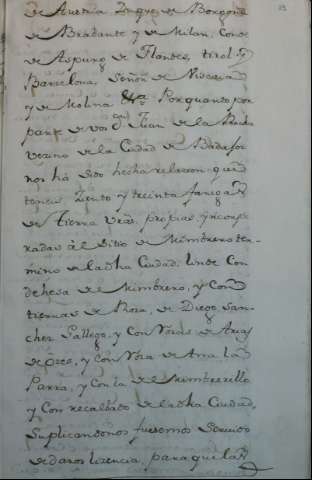 de Austria, Duque de Borgoña
de Brabante y de Milan, Conde
de Aspurg de Flandes, tirol y
Barcelona, Señor de Vizcaia
y de Molina &a. Por quanto por
parte de vos Juan de la
Vecino de la Ciudad de
nos ha sido hecha relacion que
teneis Ziento y treinta fanegas
de tierra propias
al Sitio de Mimbrero ter-
mino de la dha Ciudad, linde Con
dehesa de Mimbrero, y Con
tierras de de Diego San-
chez Gallego, y Con de Arias
de y Con de Ana la
Parra, y Con la de Mimbrerillo
y Con de la dha Ciudad,
Suplicandonos fuesemos Servido
de daros lizencia, para que la